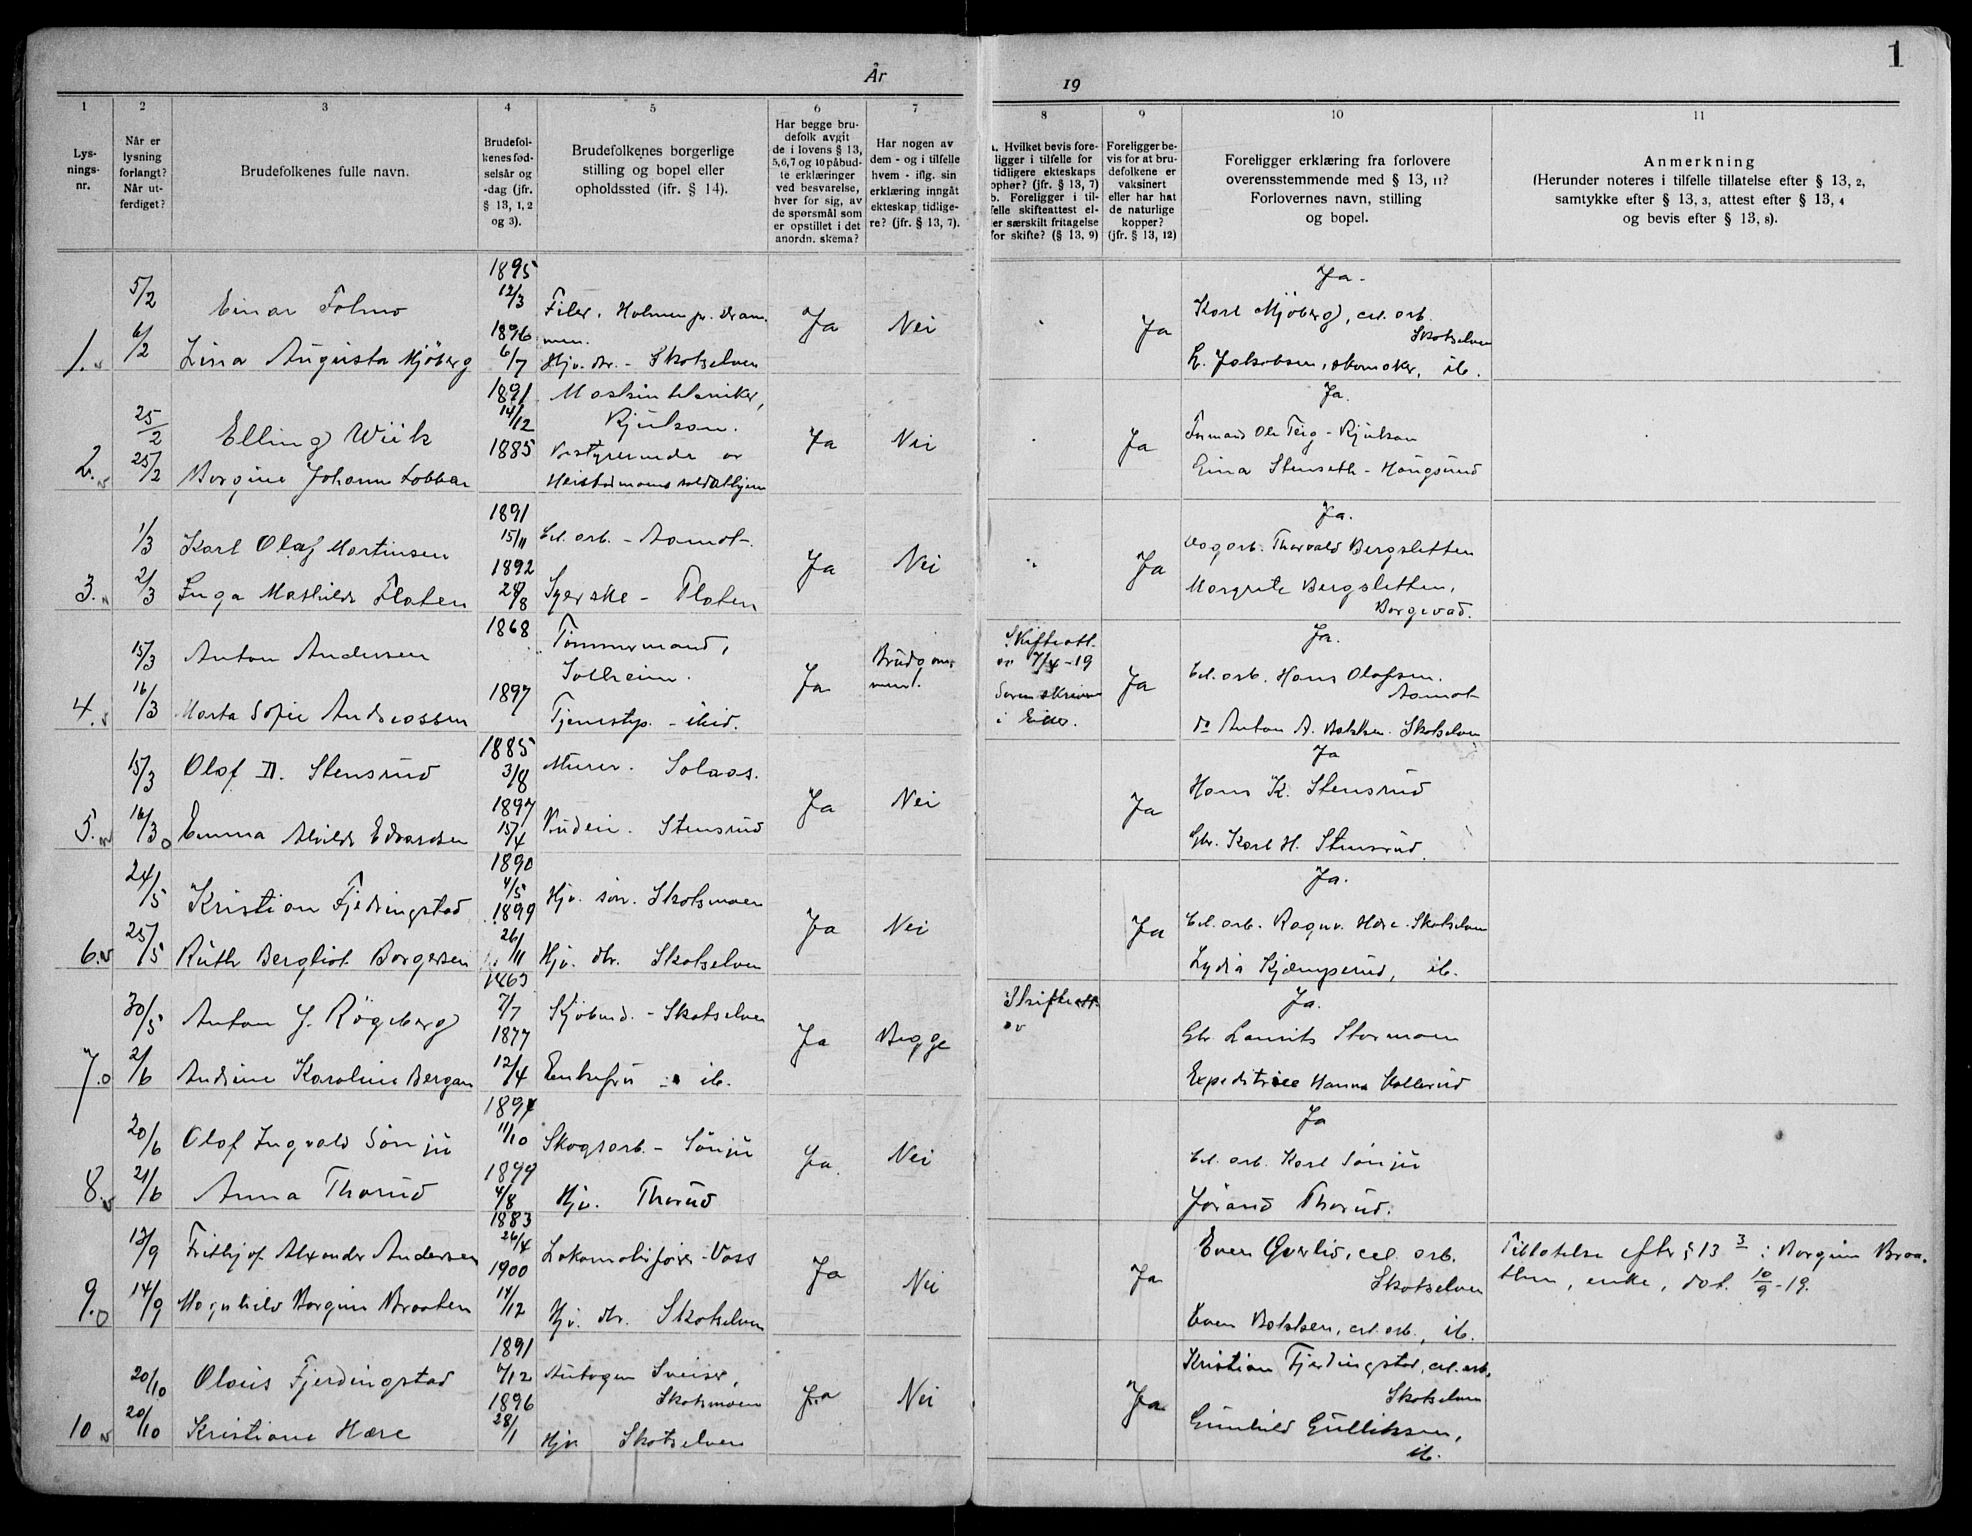 1
År
19
1 2 3 4 5 6 7 8 9 10 11
Lys-
nings-
nr.
Når er
lysning
forlangt?
Når ut-
ferdiget?
Brudefolkenes fulle navn.
Brudefol-
kenes fød-
selsår og
-dag (jfr.
§ 13, 1, 2
og 3).
Brudefolkenes borgerlige
stilling og bopel eller
opholdssted (ifr. § 14).
Har begge bru-
defolk avgit
de i lovens § 13,
5, 6, 7 og 10 påbud-
te erklæringer
ved besvarelse,
hver for sig, av
de spørsmål som
er opstillet i det
anordn. skema?
Har nogen av
dem - og i tilfelle
hvem - iflg. sin
erklæring inngått
ekteskap tidlige-
re? (jfr. § 13, 7).
a. Hvilket bevis fore-
ligger i tilfelle for
tidligere ekteskaps
ophør? (jfr. § 13, 7)
b. Foreligger i til-
felle skifteattest el-
ler særskilt fritagelse
for skifte? (§ 13, 9)
Foreligger be-
vis for at bru-
defolkene er
vaksinert
eller har hat
de naturlige
kopper?
(jfr. § 13, 12)
Foreligger erklæring fra forlovere
overensstemmende med § 13, 11?
Forlovernes navn, stilling
og bopel.
Anmerkning
(Herunder noteres i tilfelle tillatelse efter § 13, 2,
samtykke efter § 13, 3, attest efter § 13, 4
og bevis efter § 13, 8).
1.
5/2
6/2
Einar Tolmo
Lina Augusta Mjöberg
1895
12/3
1896
6/7
Filer, Holmen pr. Dram-
men.
Hjv. dtr. - Skotselven
Ja
Nei
Ja
Ja.
Karl Mjöberg, cel. arb.
Skotselven
L. Jakobsen, skomaker, ib.
2.
25/2
25/2
Elling Wiik
Borgine Johanne Lobben
1891
14/12
1885
Maskintekniker,
Rjukan.
Bestyrerinde av
Heistadmoens soldathjem
Ja
Nei
Ja
Ja.
Formand Ole Teig - Rjukan
Eina Stenseth - Hougsund
3.
1/3
2/3
Karl Olaf Martinsen
Inga Mathilde Flaten
1891
15/11
1892
28/8
Cel. arb. - Aamot.
Syerske - Flaten
Ja
Nei
Ja
Ja.
Thorvald Bergsletten
Margrete Bergsletten,
Borgevad.
4.
15/3
16/3
Anton Andersen
Marta Sofie Andreassen
1868
1897
Tømmermand,
Solheim.
Tjenestep. - ibid.
Ja
Brudgom-
men.
Skifteatt.
av 7/4-19
Sorenskriveren
i Eiker.
Ja
Ja.
Cel. arb. Hans Olafsen.
Aamot
do Anton A. Bakken. Skotselven
5.
15/3
16/3
Olaf D. Stensrud
Emma Alvilde Edvardsen
1885
3/8
1897
15/4
Murer. Solaas.
Stensrud
Ja
Nei
Ja
Ja
Hans K. Stensrud
Gbr. Karl H. Stensrud.
6.
24/5
25/5
Kristian Fjerdingstad
Ruth Bergliot Borgersen
1890
4/5
1899
26/11
Hjv. søn. Skotsmoen
Hjv. dtr. Skotselven
Ja
Nei
Ja
Ja.
Cel. arb. Ragnv. Hære. Skotselven
Lydia Kjæmperud, ib.
7.
30/5
2/6
Anton J. Rögeberg
Andrine Karoline Bergan
1863
7/7
1877
12/4
Kjøbmd. - Skotselven
Enkefru - ib.
Ja
Begge
Skifteatt.
av
Ja.
Gbr. Laurits Stormoen
Expeditrice Hanna Kollerud
8.
20/6
21/6
Olaf Ingvald Sönju
Anna Thorud
1897
11/10
1899
4/8
Skogsarb. - Sönju
Hjv. Thorud
Ja.
Nei
Ja
Cel. arb. Karl Sönju
Jørand Thorud.
9.
13/9
14/9
Fritjof Alexander Andersen
Magnhild Borgine Braaten
1883
26/4
1900
14/12
Lokomotivfører - Voss
Hjv. dtr. Skotselven
Ja
Nei
Ja
Even Qverlid, cel. arb.
Skotselven
Even Bakken, cel. arb., ib.
Tillatelse efter § 13 3 : Borgine Braa-
then, enke, dat. 10/9-19.
10
20/10
20/10
Olaus Fjerdingstad
Kristiane Hære
1891
6/12
1896
28/1
Autogen Sveiser,
Skotsmoen
Hjv. Skotselven
Ja
Nei
Ja
Kristian Fjerdingstad, cel. arb.
Skotselven
Gunhild Gulliksen,
ib.